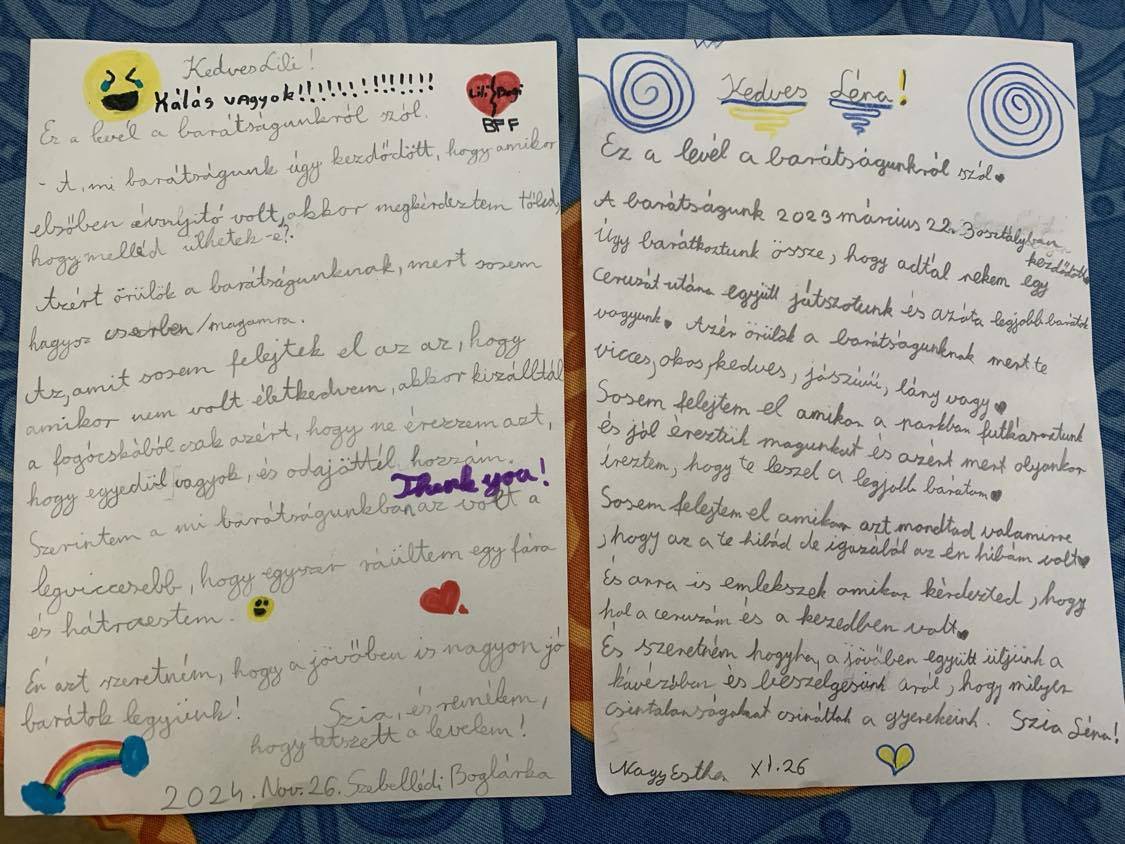 Kedves Lili!
Hálás vagyok!!!!!!!!!!!!!
Lili Bogi
BFF
Ez a levél a barátságunkról szól.
- A, mi barátságunk úgy kezdődött, hogy amikor
elsőben évnyitó volt, akkor megkérdeztem tőled,
hogy melléd ülhetek-e?
Azért örülök a barátságunknak, mert sosem
hagysz cserben/magamra.
Az, amit sosem felejtek el az az, hogy
amikor nem volt életkedvem, akkor kiszálltál
a fogócskából csak azért, hogy ne érezzem azt,
hogy egyedül vagyok, és odajöttél hozzám.
Thank you!
Szerintem a mi barátságunkban az volt a
legviccesebb, hogy egyszer ráültem egy fára
és hátraestem.
Én azt szeretném, hogy a jövőben is nagyon jó
barátok legyünk!
Szia, és remélem,
hogy tetszett a levelem!
2024. Nov. 26. Szebellédi Boglárka
Kedves Léna!
Ez a levél a barátságunkról szól
A barátságunk 2023 március 22. 3 osztályban
kezdődött
Úgy barátkoztunk össze, hogy adtál nekem egy
ceruzát utána együtt játszotunk és azóta legjobb barátok
vagyunk Azér örülök a barátságunknak mert te
vicces, okos, kedves, jószívű, lány vagy
Sosem felejtem el amikor a parkban futkároztunk
és jól éreztük magunkat és azért mert olyankor
éreztem, hogy te leszel a legjobb barátom
Sosem felejtem el amikor azt mondtad valamire
, hogy az a te hibád de igazából az én hibám volt
És arra is emlekszek amikor kérdezted, hogy
hol a ceruzám és a kezedben volt
És szeretném hogyha, a jövőben együtt üljünk a
kávézóban és beszelgesünk aról, hogy milyen
csintalanságokat csináltak a gyerekeink. Szia Léna!
Nagy Eszther XI.26